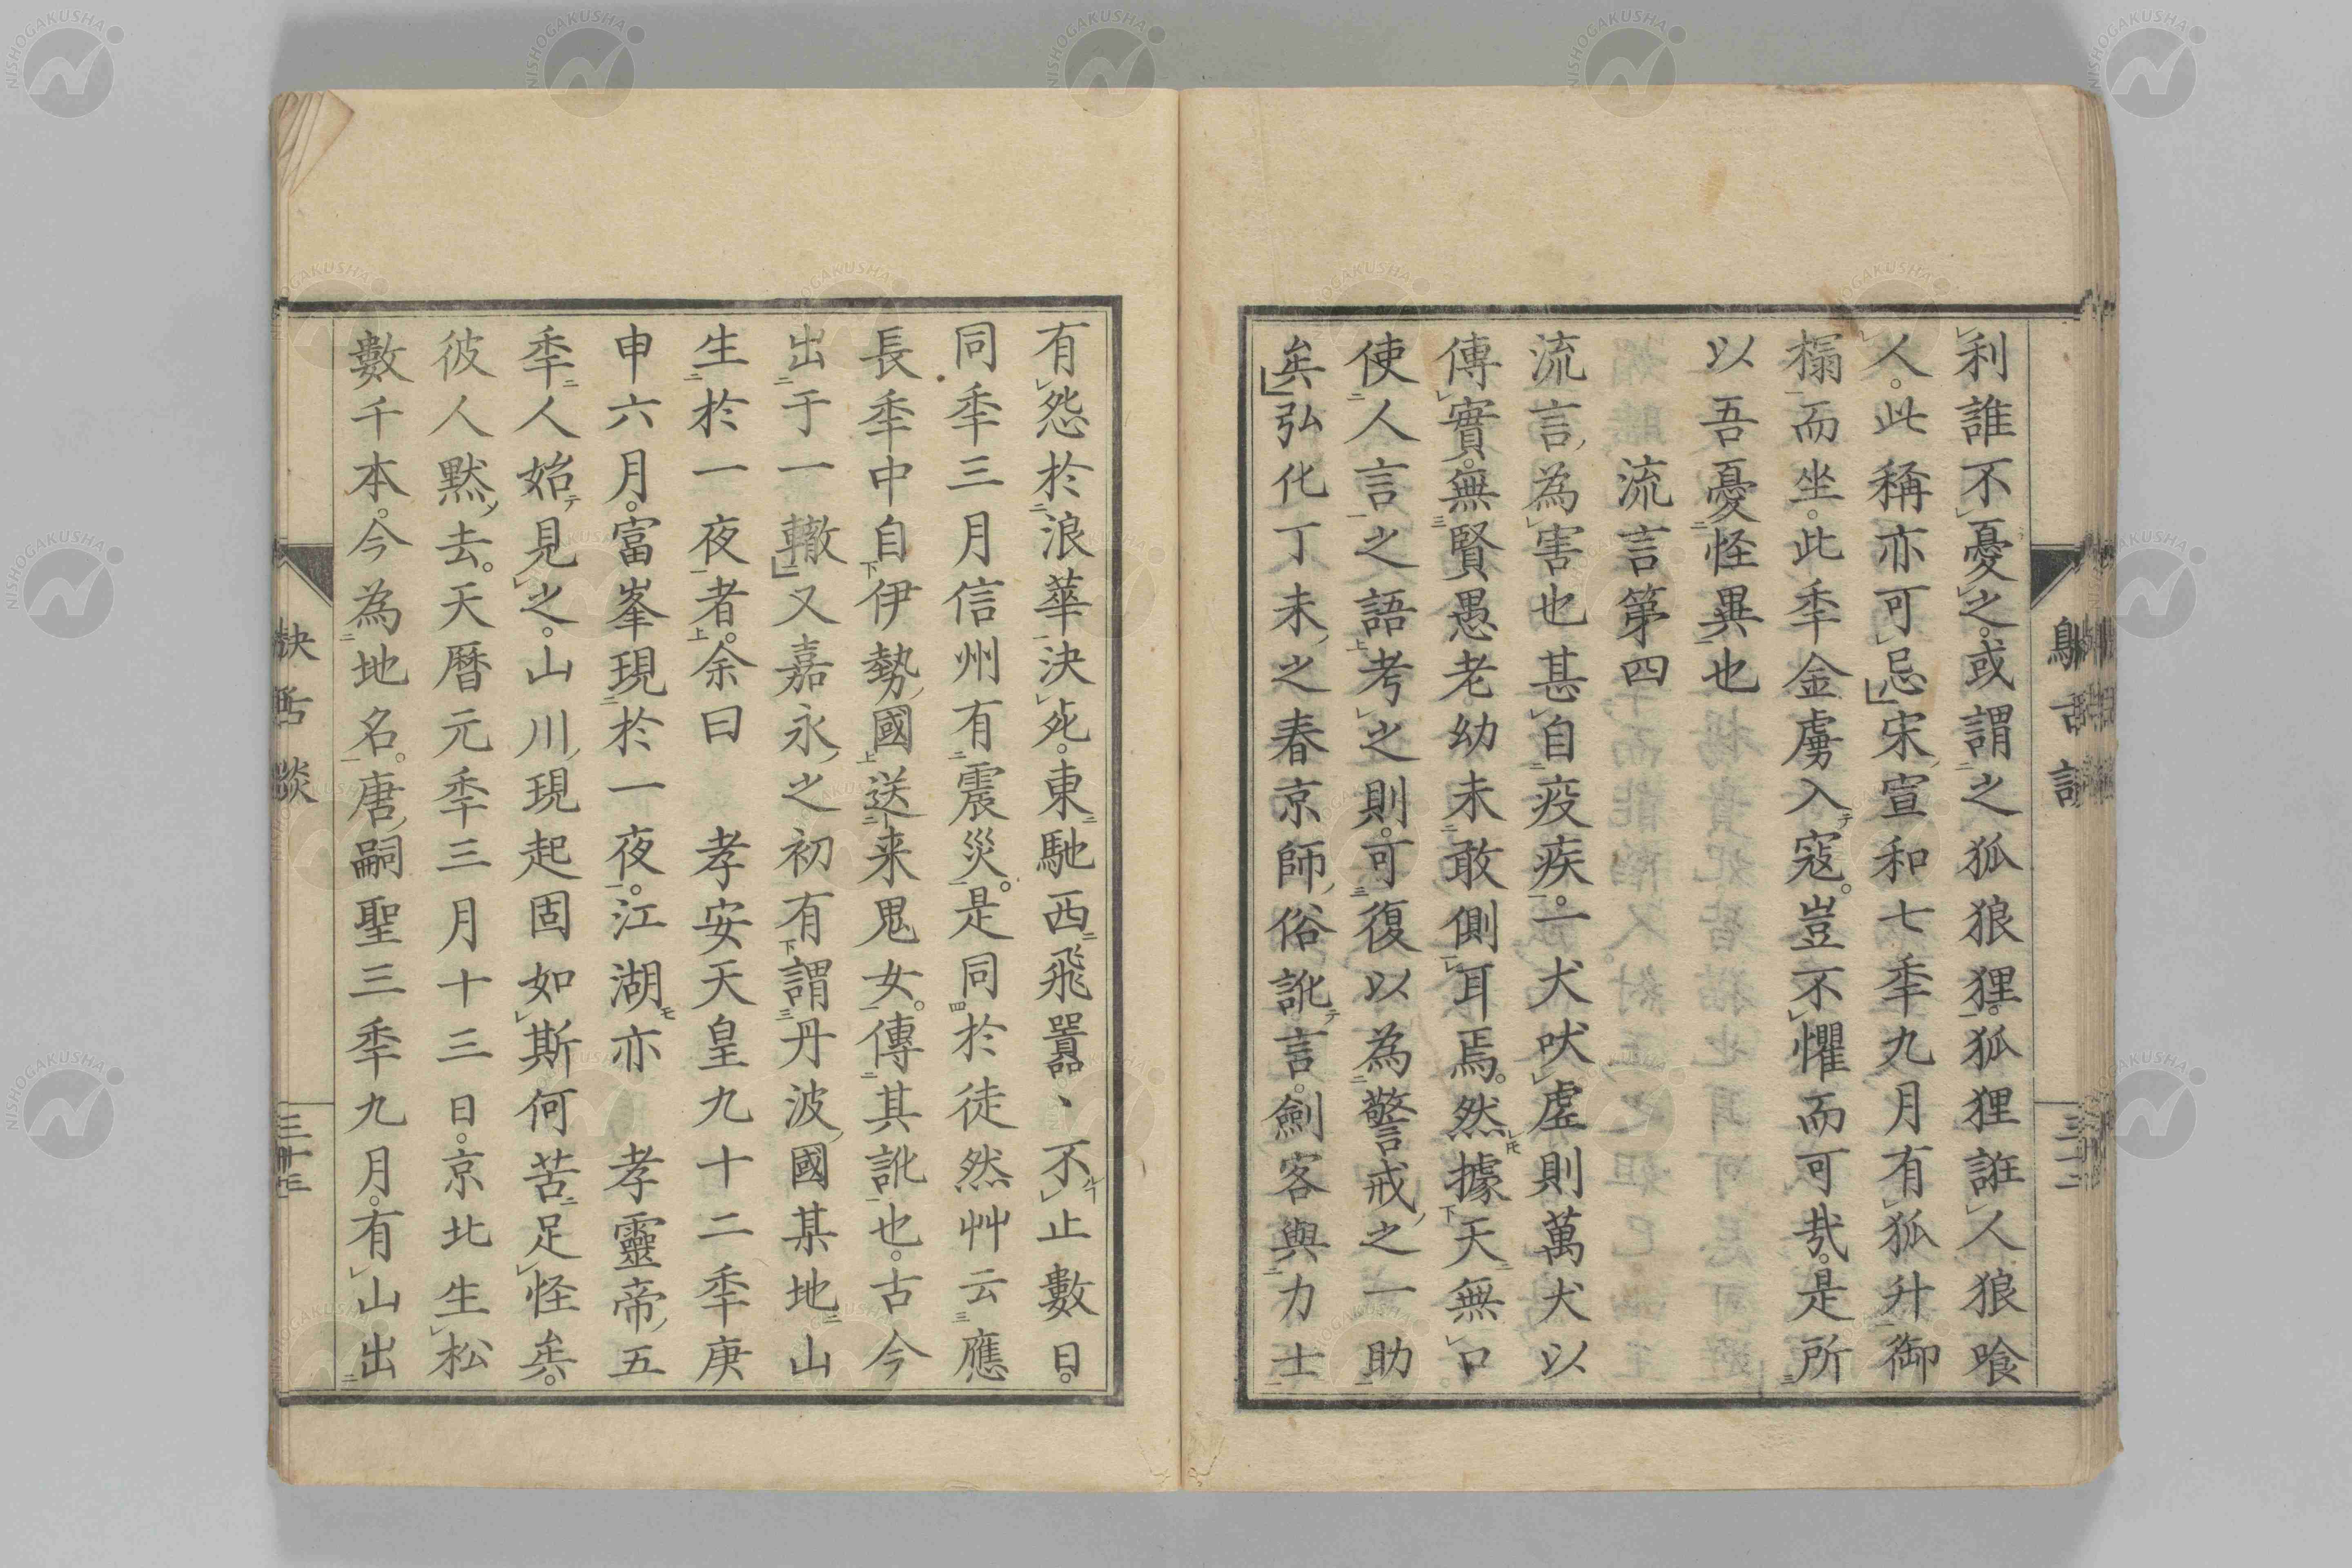 利誰不憂之。或謂之狐狼狸。狐狸誑人狼喰
人。此稱亦可忌宋宣和七季九月有狐升御
榻而坐。此季金虜入寇。豈不懼而可哉。是所
以吾憂怪異也
流言第四
流言為害也甚自疫疾。一犬吠虗則萬犬以
傳實。無賢愚老幼未敢側耳焉。然據天無口
使人言之語考之則。可復以為警戒之一助
矣弘化丁未之春京師俗訛言。劍客與力士
有怨於浪華決死。東馳西飛囂囂不止數日。
同季三月信州有震災。是同於徒然艸云應
長季中自伊勢國送来鬼女。傳其訛也。古今
出于一轍又嘉永之初有謂丹波國某地山
生於一夜者。余曰 孝安天皇九十二季庚
申六月。富峯現於一夜。江湖亦 孝靈帝五
季人始見之。山川現起固如斯何苦足怪矣。
彼人默去。天曆元季三月十三日。京北生松
數千本。今為地名。唐嗣聖三季九月。有山出
三十三